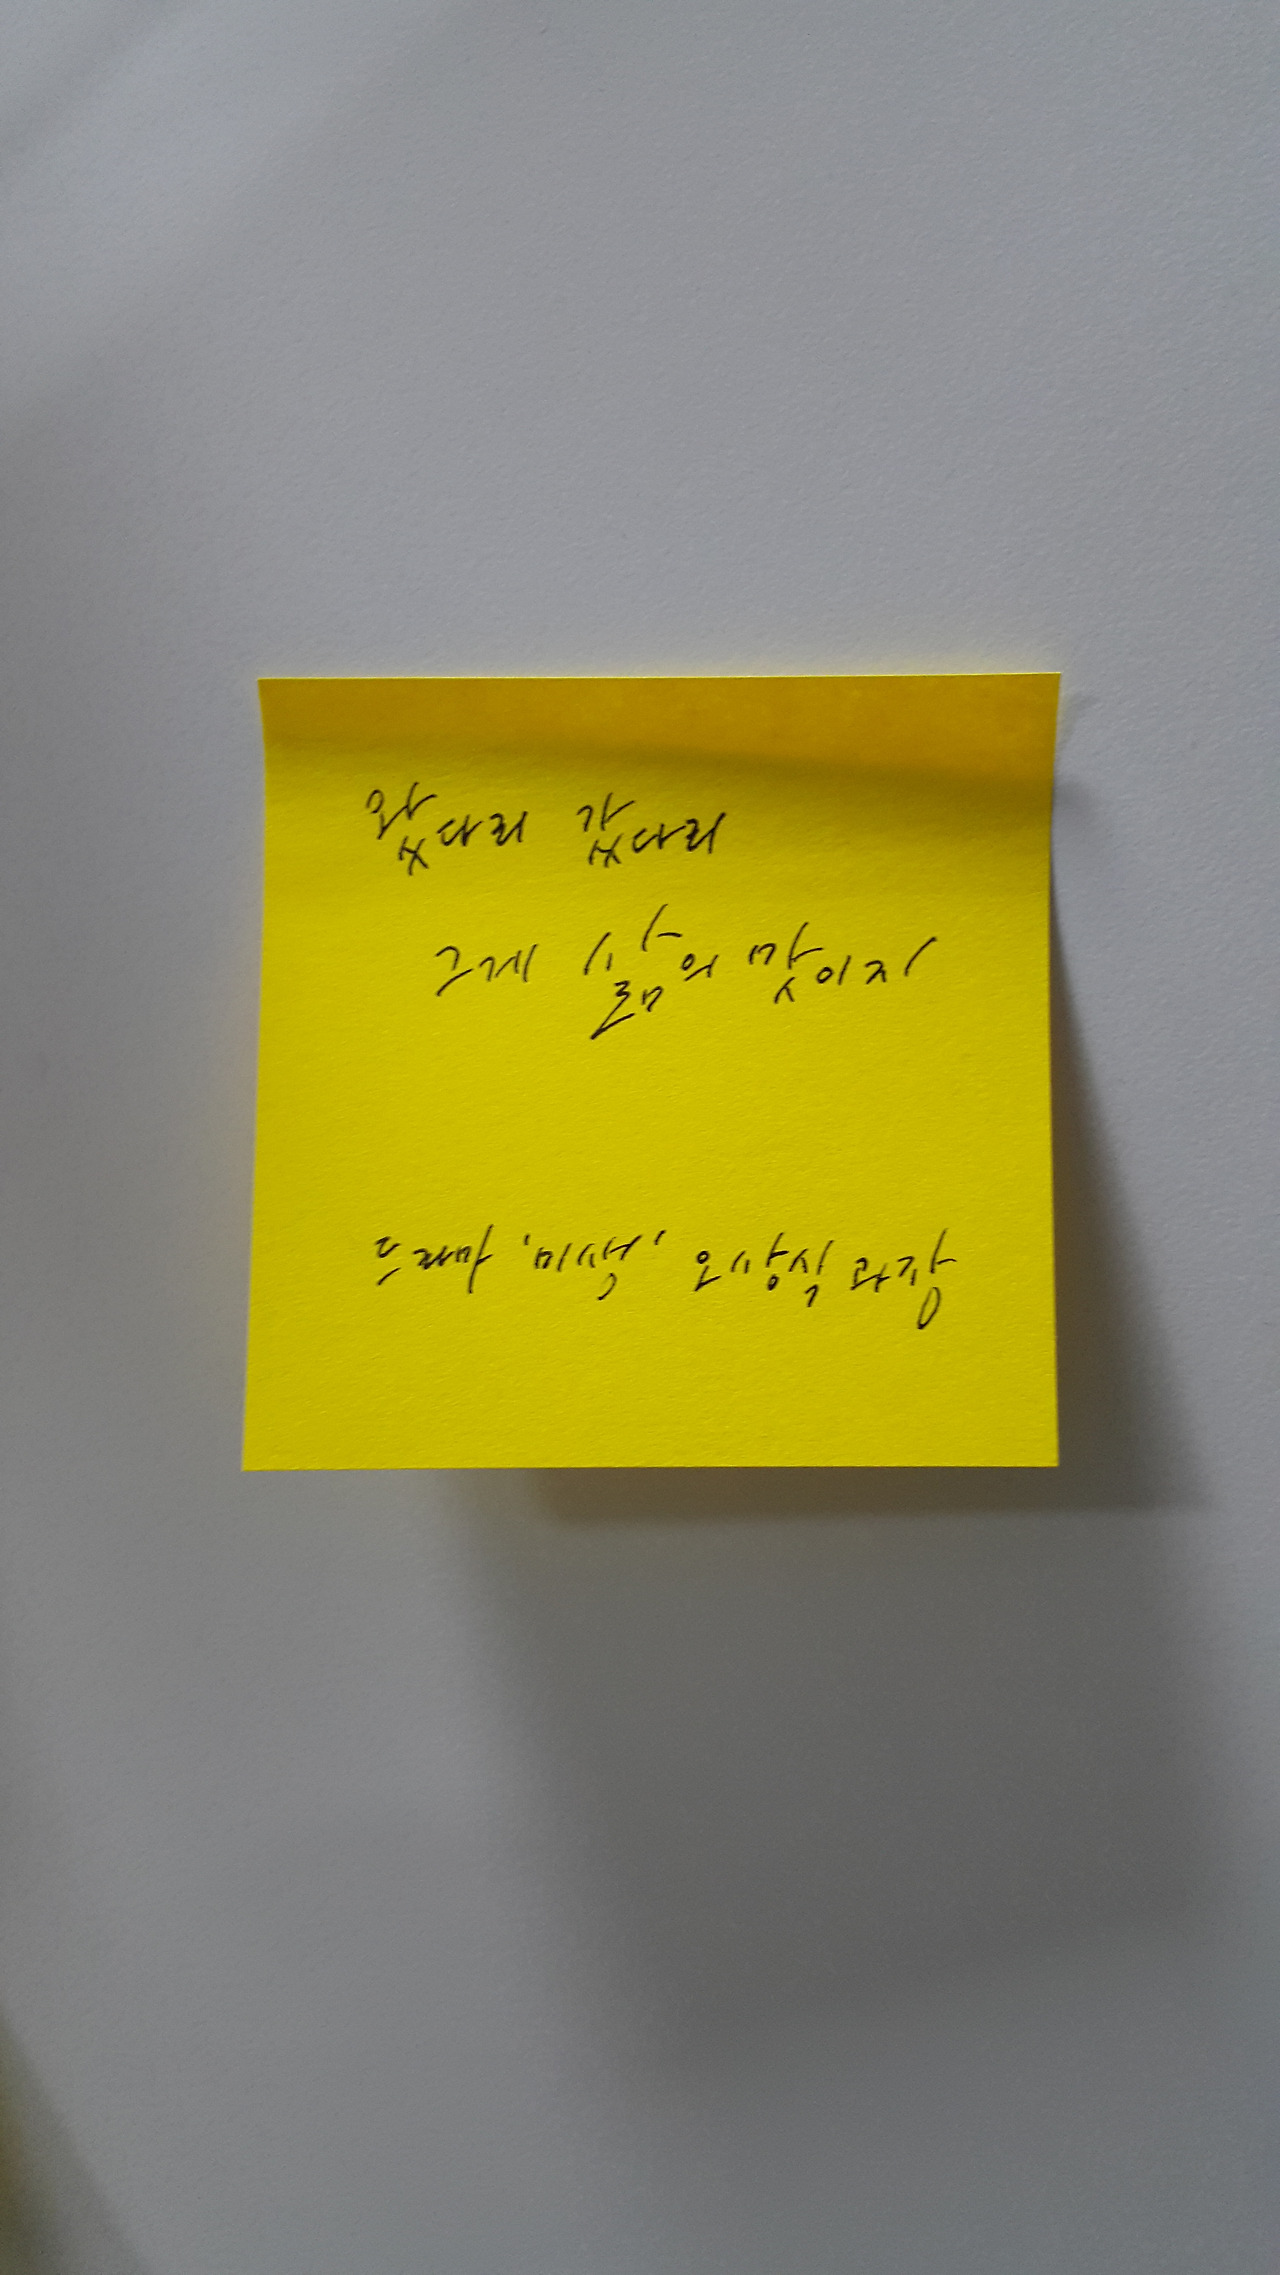 왔다리 갔다리
그게 삶의 맛이지
드라마 '미생' 오상식 과장